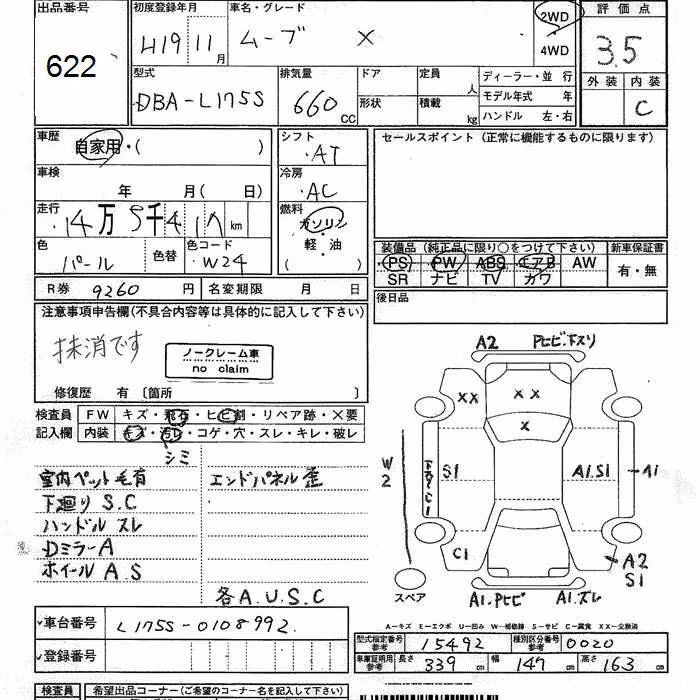 出品番号
622
初度登録年月
H19 11月
車名・グレード
ムーブ X
2WD
4WD
評価点
3.5
型式
DBA-L175S
排気量
660 CC
ドア
形状
定員 人
積載 kg
ディーラー・並 行
モデル年式 年
ハンドル 左・右
外装
内装
C
車歴
自家用・( )
シフト
AT
セールスポイント(正常に機能するものに限ります)
車検
年 月( 日)
冷房
AC
走行
14万5千41八km
燃料
ガソリン
・
軽・油
( )
色
パール
色替
色コード
W24
装備品(純正品に限り○をつけて下さい)
新車保証書
PS PW ABS エアB AW
SR ナビ TV カワ
有・無
R券 9260 円
名変期限 月 日
後日品
注意事項申告欄(不具合内容等は具体的に記入して下さい)
抹消です
ノークレーム車
no claim
修復歴 有 〔箇所 〕
検査員
記入欄
FW キズ・飛石・ヒビ割・リペア跡・X要
内装 キズ・汚れ・コゲ・穴・スレ・キレ・破レ
シミ
室内ペット毛有
下廻り S.C
ハンドル スレ
DミラーA
ホイールA.S
エンドパネル歪
各A.U.S.C
車台番号
L175S-0108992
登録番号
検査員
希望出品コーナー(ご希望のコーナー名を記入して下さい)
A2
Pヒビ.下スリ
XX
X X
X
W2
S1
A1.S1
A1
C1
A2
S1
スペア
A1.Pヒビ
A1.スレ
A-キズ E-エクボ U-凹み W-補修跡 S-サビ C-腐食 XX-交換済
型式指定番号
参考
15492
種別区分番号
参考
0020
車庫証明用
参考
長さ 339 cm
幅 147 cm
高さ 163 cm